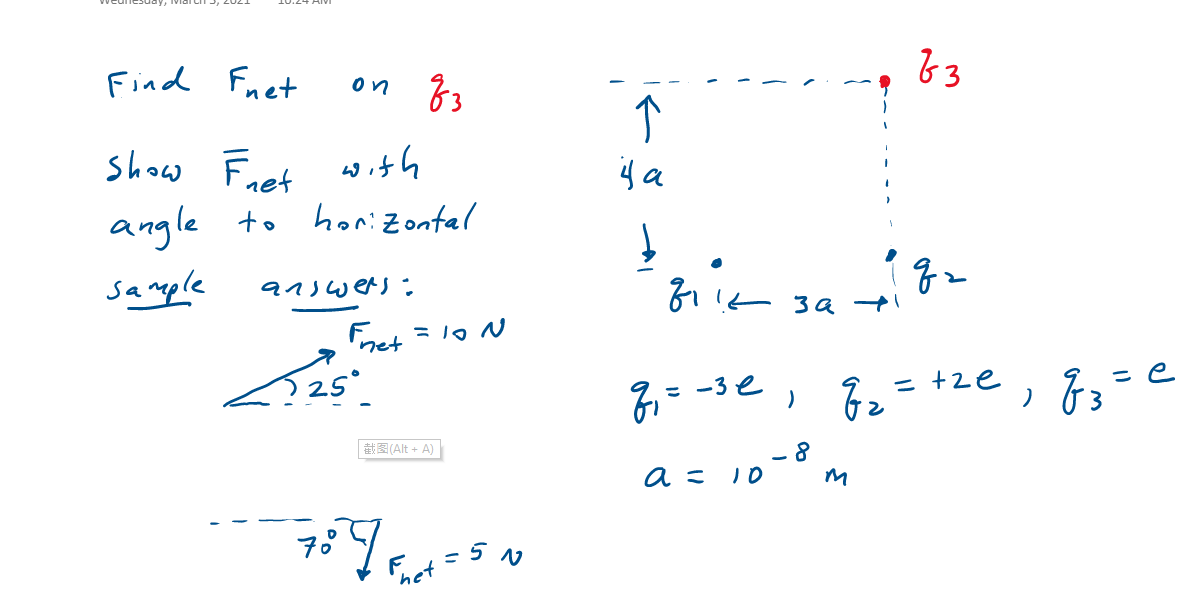 Wednesday, March 3, 2021 10:24 AM
Find Fnet on q3
Show F̅net with
angle to horizontal
sample answers:
Fnet = 10 N
25°
70°
Fnet = 5 N
截图(Alt + A)
q3
4a
q1
3a
q2
q1 = -3e, q2 = +2e, q3 = e
a = 10⁻⁸ m